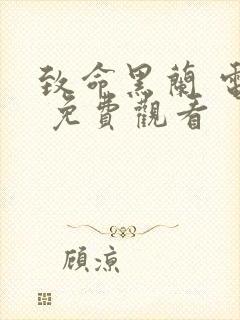 致命黑蘭 電
免費觀看
顧涼